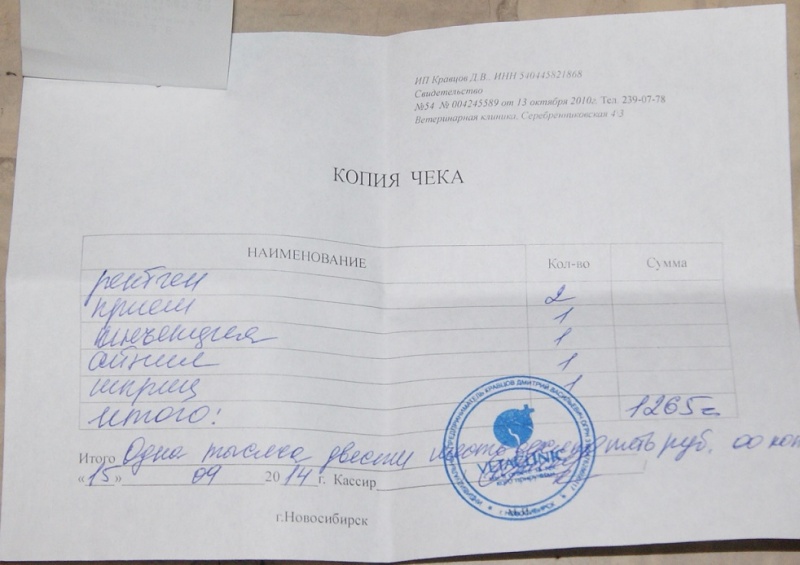 ИП Кравцов Д.В. ИНН 540445821868
Свидетельство
№54 № 004245589 от 13 октября 2010г. Тел. 239-07-78
Ветеринарная клиника, Серебренниковская 4\3
КОПИЯ ЧЕКА
НАИМЕНОВАНИЕ Кол-во Сумма
рентген 2
прием 1
инъекция 1
айнил 1
шприц 1
Итого: 1265=
Итого Одна тысяча двести шестьдесят пять руб. 00 коп
«15» 09 2014г. Кассир
ИНДИВИДУАЛЬНЫЙ ПРЕДПРИНИМАТЕЛЬ КРАВЦОВ ДМИТРИЙ ВАСИЛЬЕВИЧ ОГРН
VITACLINIC
г. НОВОСИБИРСК
г.Новосибирск